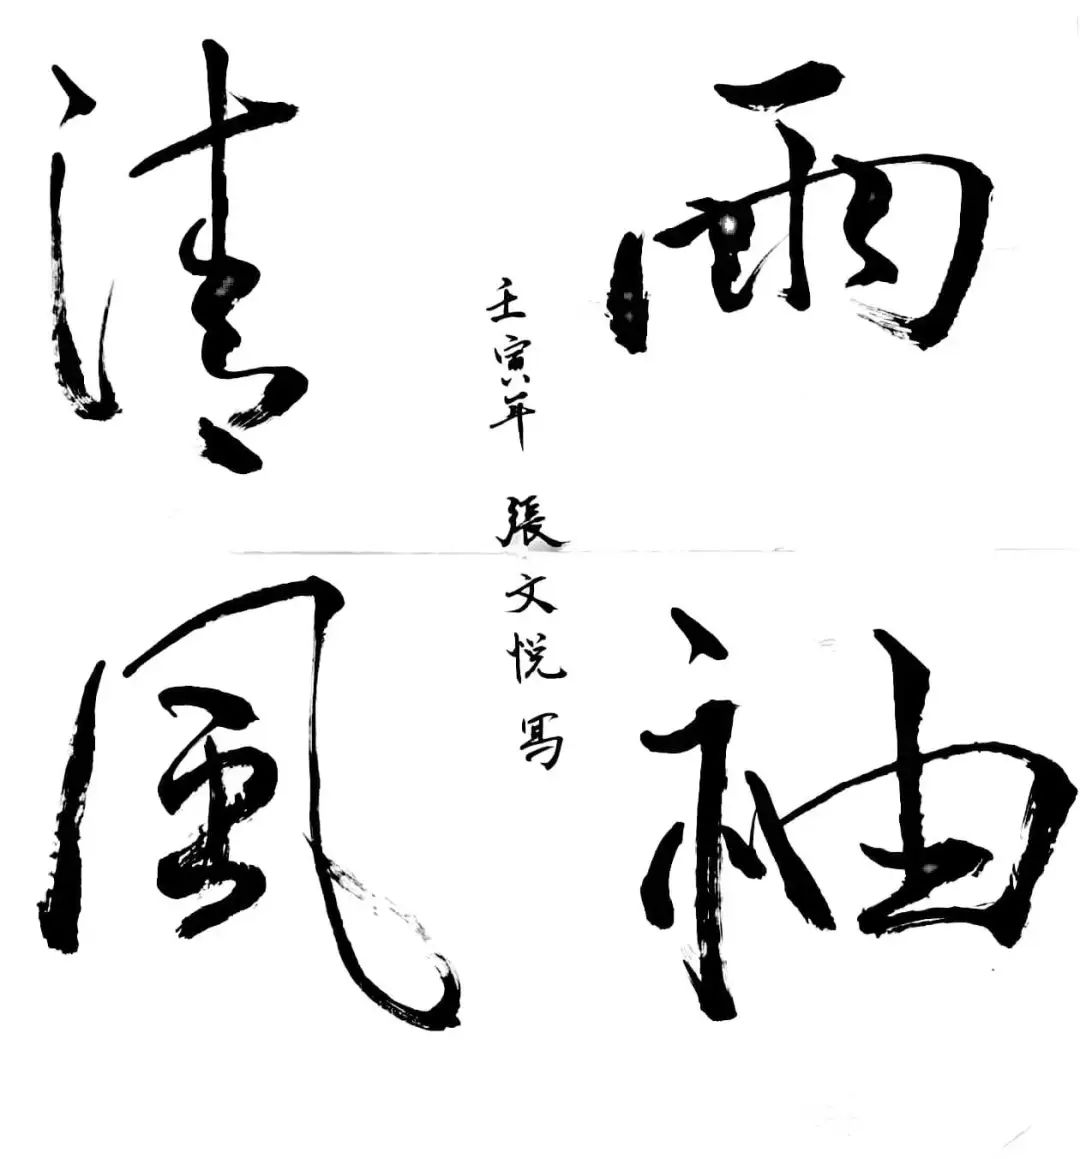 兩袖
清風
壬寅年 張文悦写